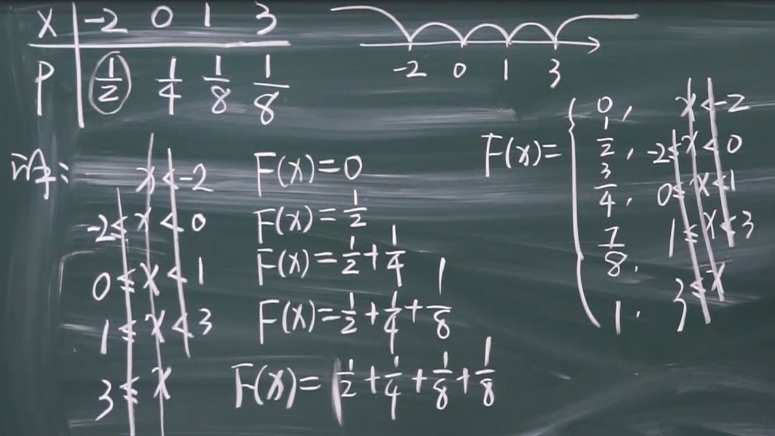 X -2 0 1 3
P 1/2 1/4 1/8 1/8
-2 0 1 3
解:
x<-2 F(x)=0
-2≤x<0 F(x)=1/2
0≤x<1 F(x)=1/2+1/4
1≤x<3 F(x)=1/2+1/4+1/8
3≤x F(x)=1/2+1/4+1/8+1/8
F(x)={
0, x<-2
1/2, -2≤x<0
3/4, 0≤x<1
7/8, 1≤x<3
1. 3≤x